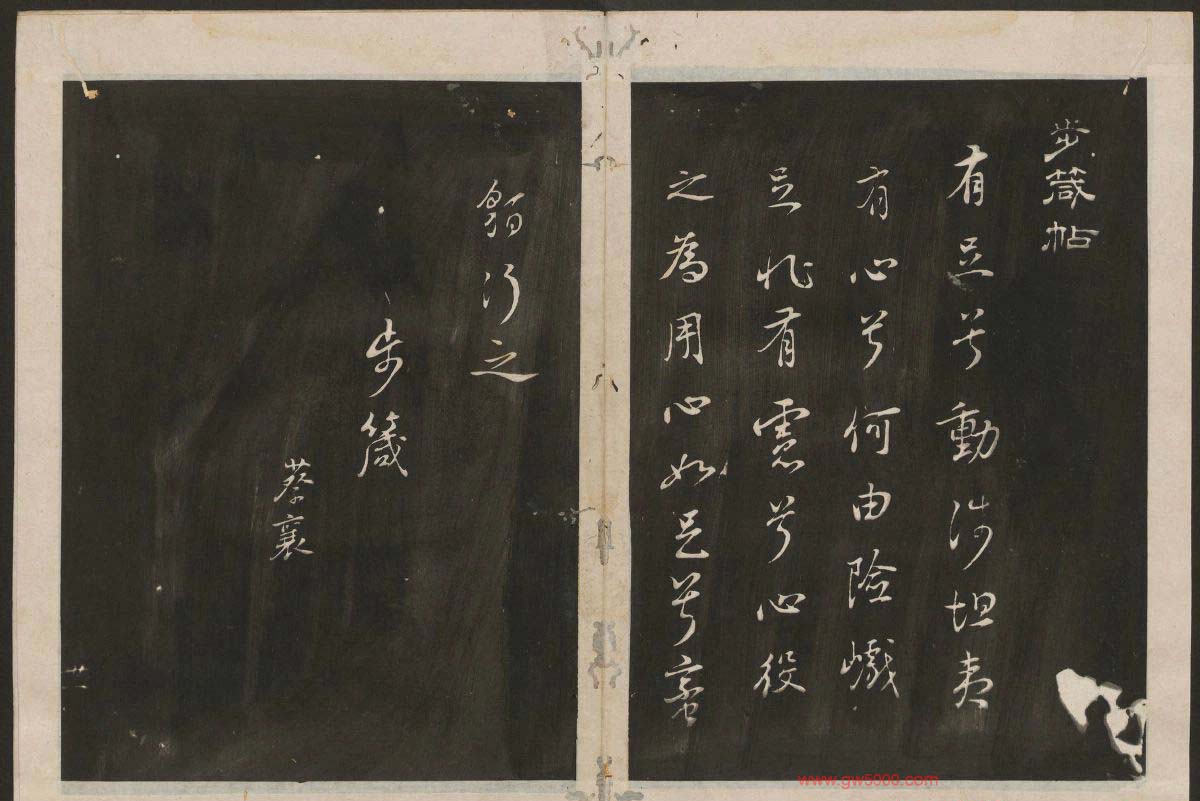 步箴帖
有足兮動涉坦夷
有心兮何由險巇
足非有慮兮心役
之為用心如足兮蠻
貊行之
步箴
蔡襄
www.gw5000.com